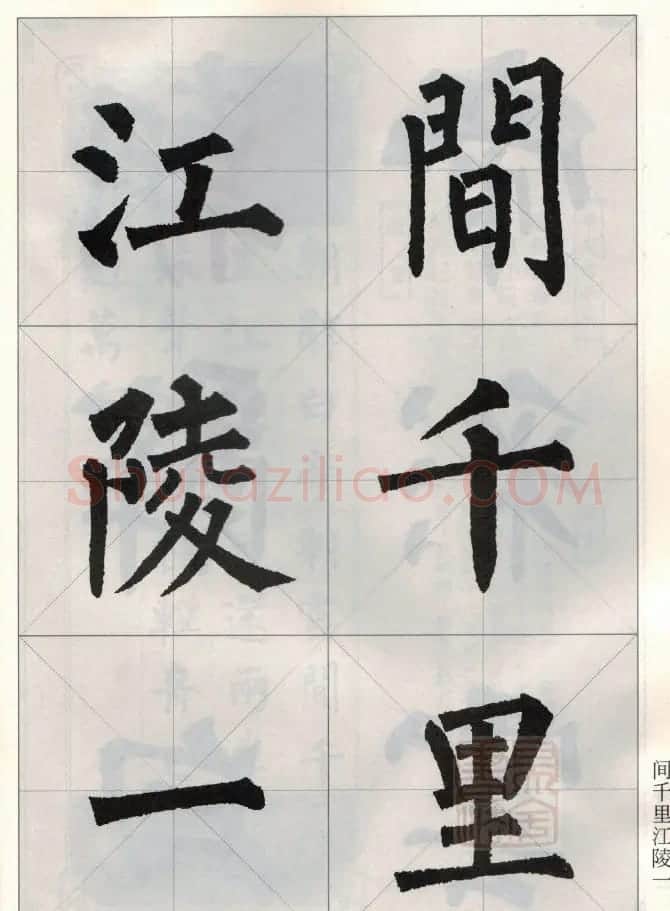 間千里
江陵一
间千里江陵一
Shufaziliao.COM